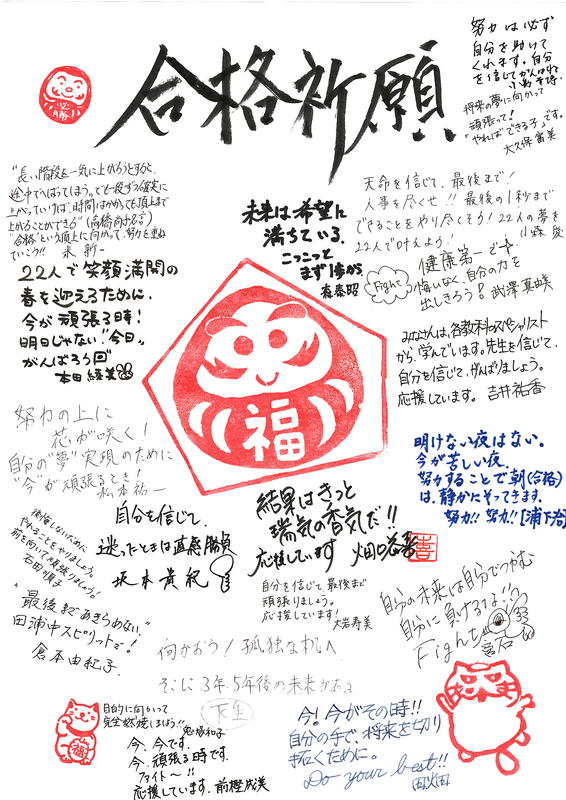 合格祈願
必勝
努力は必ず
自分を助けて
くれます。自分
を信じてがんばれ
将来の夢に向かって
頑張って！
「やればできる子」です。
大久保富美
"長い階段を一気に上がろうとすると、
途中でへばってしまう。でも一段ずつ確実に
上がっていけば、時間はかかっても頂上まで
上がることができる"(高橋尚子名言)
"合格"という頂上に向かって、努力を重ね
ていこう!!
天命を信じて、最後まで！
人事を尽くせ!! 最後の1秒まで
できることをやり尽くそう！22人の夢を
22人で叶えよう！
小森 愛
未来は希望に
満ちている。
こつこつと
まず1歩から
森泰昭
22人で笑顔満開の
春を迎えるために、
今が頑張る時！
明日じゃない"今日"
がんばろう
本田綾美
Fight
健康第一で
悔いなく、自分の力を
出しきろう！武澤真咲
みなさんは、各教科のスペシャリスト
から、学んでいます。先生を信じて、
自分を信じて、がんばりましょう。
応援しています。吉井祐香
福
努力の上に
花が咲く！
自分の"夢"実現のために
"今"が頑張るとき！
松本祐一
明けない夜はない。
今が苦しい夜、
努力することで朝(合格)
は、静かにそってきます。
努力!! 努力!! [浦下治]
自分を信じて、
迷ったときは直感勝負
坂本貴紀
結果はきっと
瑞気の香気だ!!
応援しています
後悔しないために
やれることをやりましょう。
前を向いて頑張りましょう！
石田順子
自分を信じて最後まで
頑張りましょう。
応援しています！
大岩寿美
自分の未来は自分でつかむ
自分に負けるな!!
Fight
"最後まであきらめない"
田浦中スピリットで！
倉本由紀子
向かおう！孤独な戦へ
そこに3年、5年後の未来がある
目的に向かって
完全燃焼しましょう!!
福
今、今です。
今、頑張る時です。
ファイト〜!!
応援しています。前樫成美
今！今がその時!!
自分の手で、将来を切り
拓くために。
Do your best!!